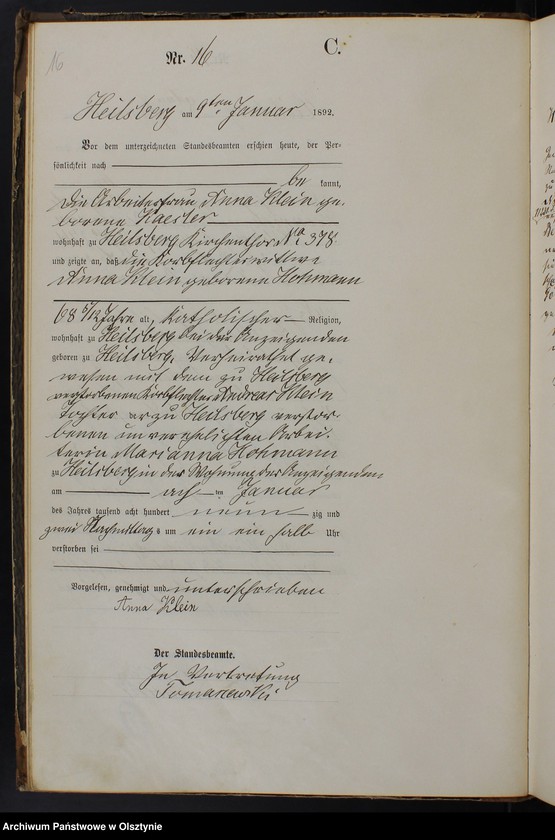 16
C.
Nr. 16
Heilsberg am 9ten Januar 1892.
Vor dem unterzeichneten Standesbeamten erschien heute, der Per-
sönlichkeit nach
be kannt,
die Arbeiterfrau Anna Klein ge-
borene Kaester
wohnhaft zu Heilsberg Kirchenthor No 378
und zeigte an, daß die Korbflechterwittwe
Anna Klein geborene Hohmann
68 5/12 Jahre alt, katholischer Religion,
wohnhaft zu Heilsberg bei der Anzeigenden
geboren zu Heilsberg, Verheirathet ge-
wesen mit dem zu Heilsberg
verstorbenen Korbflechter Andreas Klein
Tochter der zu Heilsberg verstor-
benen unverehelichten Arbei-
terin Marianna Hohmann
zu Heilsberg in der Wohnung der Anzeigenden
am acht ten Januar
des Jahres tausend acht hundert neun zig und
zwei Nachmittags um ein ein halb Uhr
verstorben sei
Vorgelesen, genehmigt und unterschrieben
Anna Klein
Der Standesbeamte.
In Vertretung
Tomaszewski
Archiwum Państwowe w Olsztynie